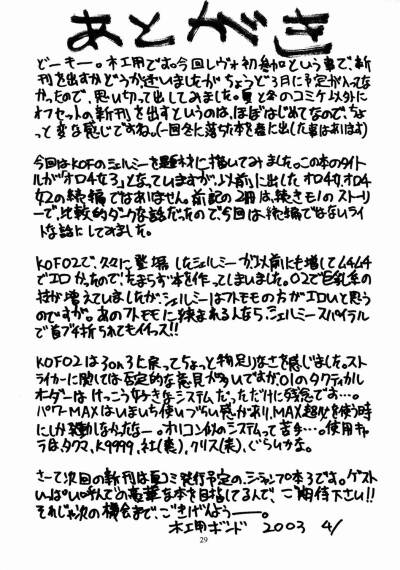 あとがき
どーもー。木工用です。今回レヴォ初参加という事で、新
刊を出すかどうか迷いましたがちょうど3月に予定が入ってな
かったので、思い切って出してみました。夏と冬のコミケ以外に
オフセットの新刊を出すというのは、ほぼはじめてなので、ちょ
っと変な感じですね。(一回冬に落ちた本を春に出した事はあります)
今回はKOFのシェルミーを題材に描いてみました。この本のタイト
ルが「オロ4女3」となっていますが、以前に出したオロ4女、オロ4
女2の続編ではありません。前記の2冊は、続きもののストーリ
ーで、比較的ダークな話だったので今回は、続編ではないライ
トな話にしてみました。
KOF02で、久々に登場したシェルミーが以前にも増してムチムチ
でエロかったので、たまらず本を作ってしまいました。02で巨乳系の
技が増えていましたが、シェルミーはフトモモの方がエロいと思う
のですが。あのフトモモに挟まれる人なら、シェルミースパイラル
で首ブチ折られてもイイっス!!
KOF02は3on3に戻ってちょっと物足りなさを感じました。スト
ライカーに関しては否定的な意見が多いですが01のタクティカル
オーダーはけっこう好きなシステムだっただけに残念です…。
パワーMAXはいまいち使いづらい感があり、MAX超必を使う時
にしか発動しなかったなー。オリコン似のシステムって苦手…。使用キャ
ラは、タクマ、K9999、社(裏)、クリス(裏)、ぐらいかな。
さーて次回の新刊は夏コミ発行予定のシャンプ本3です。ゲスト
いっぱい呼んでの豪華な本を目指してるんで、ご期待下さい!!
それじゃ次の機会まで、ごきげんよう――。
木工用ボンド 2003 4/
29